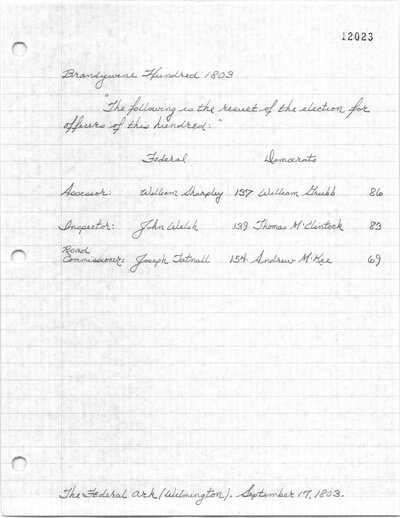 12023
Brandywine Hundred 1803
"The following is the result of the election for
officers of this hundred:"
Federal Democrats
Assessor: William Sharpley 137 William Grubb 86
Inspector: John Welsh 139 Thomas McClintock 83
Road
Commissioner: Joseph Tatnall 154 Andrew McKee 69
The Federal Ark (Wilmington). September 17, 1803.